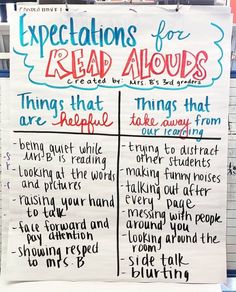 Expectations for
READ ALOUDS
created by: Mrs. B's 3rd graders
Things that
are helpful
-being quiet while
Mrs. B is reading
-Looking at the words
and pictures
-raising your hand
to talk
-face forward and
pay attention
-showing respect
to Mrs. B
Things that
take away from
our learning
-trying to distract
other students
-making funny noises
-talking out after
every page
-messing with people
around you
-looking around the
room
-side talk
-blurting